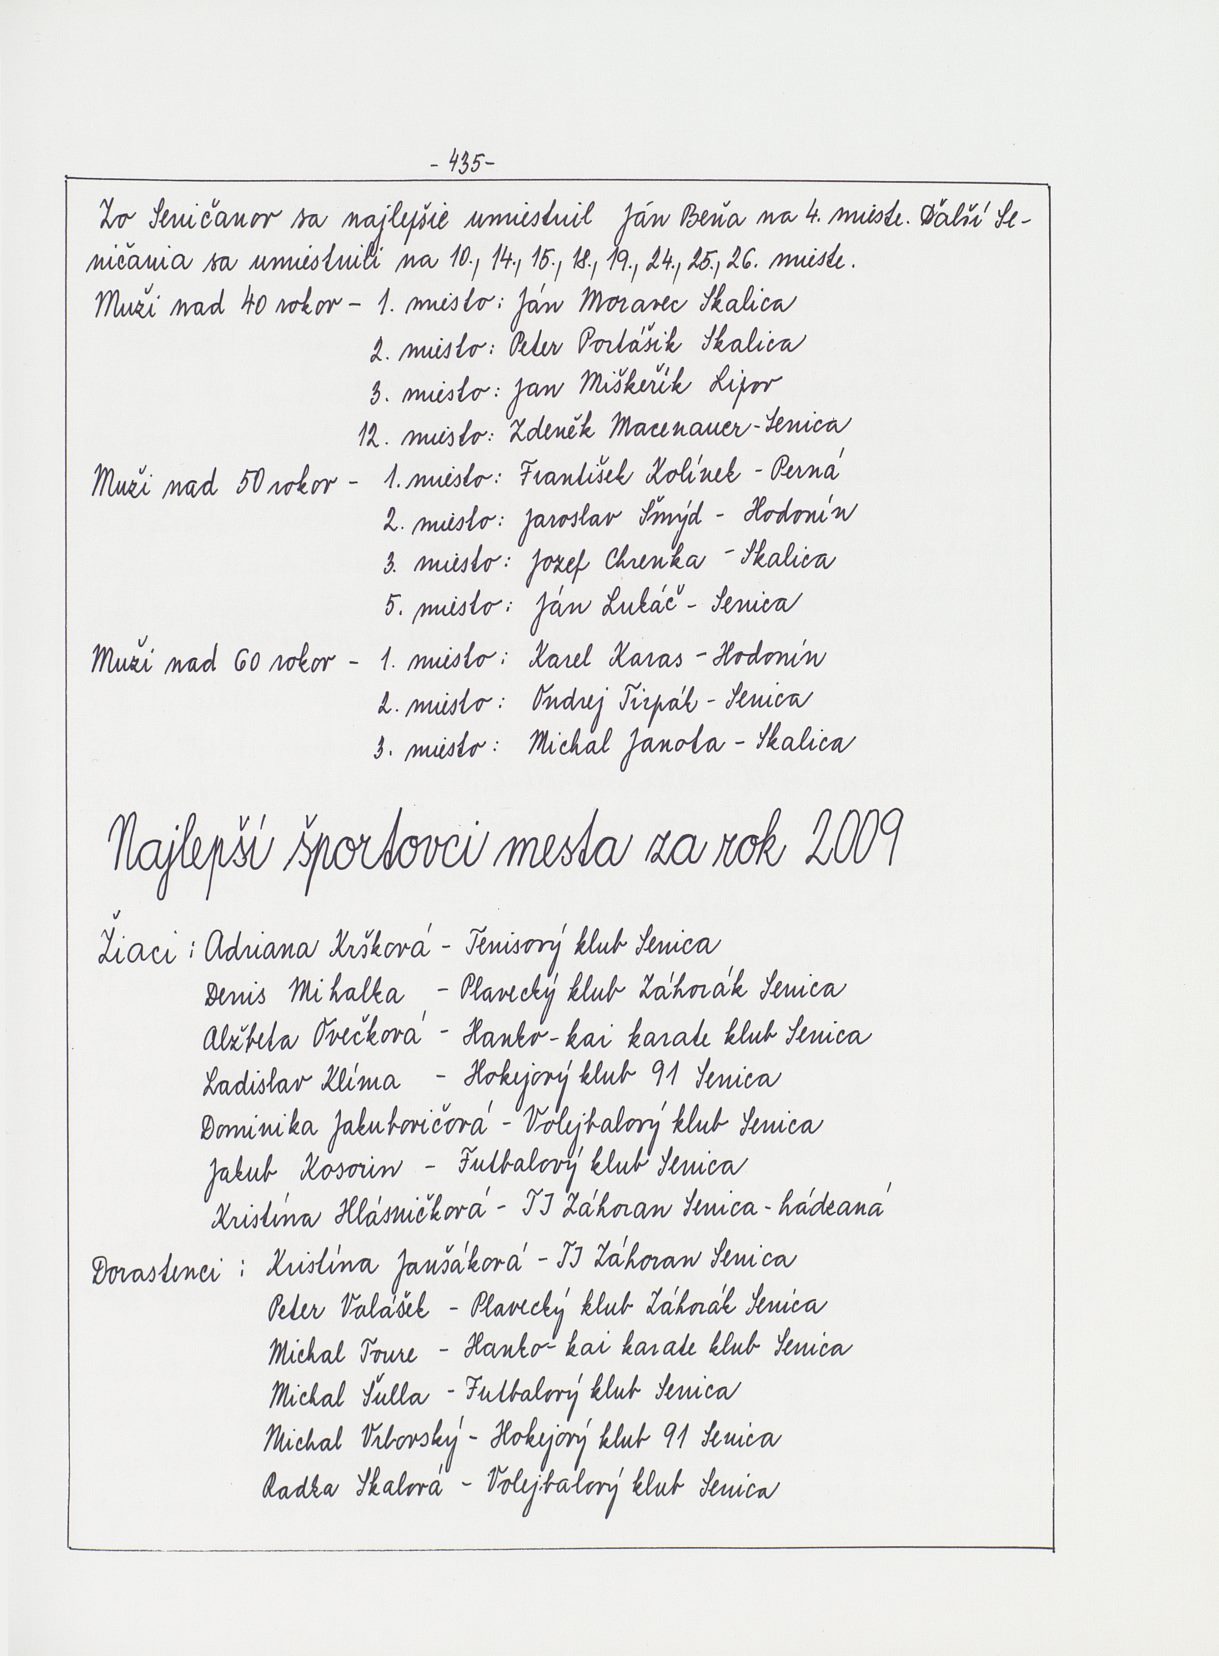 - 435-
Zo Seničanov sa najlepšie umiestnil Ján Beňa na 4. mieste. Ďalší Se-
ničania sa umiestnili na 10., 14., 15., 18., 19., 24., 25., 26. mieste.
Muži nad 40 rokov - 1. miesto: Ján Moravec Skalica
2. miesto: Peter Portášik Skalica
3. miesto: Jan Miškeřík Lipov
12. miesto: Zdeněk Macenauer-Senica
Muži nad 50 rokov - 1. miesto: František Kolínek - Perná
2. miesto: Jaroslav Šmýd - Hodonín
3. miesto: Jozef Chrenka - Skalica
5. miesto: Ján Lukáč - Senica
Muži nad 60 rokov - 1. miesto: Karel Karas - Hodonín
2. miesto: Ondrej Tirpák - Senica
3. miesto: Michal Janota - Skalica
Najlepší športovci mesta za rok 2009
Žiaci : Adriana Kršková - Tenisový klub Senica
Denis Mihalka - Plavecký klub Záhorák Senica
Alžbeta Ovečková - Hanko-kai karate klub Senica
Ladislav Klíma - Hokejový klub 91 Senica
Dominika Jakubovičová - Volejbalový klub Senica
Jakub Kosorin - Futbalový klub Senica
Kristína Hlásničková - TJ Záhoran Senica - hádzaná
Dorastenci : Kristína Janšáková - TJ Záhoran Senica
Peter Valášek - Plavecký klub Záhorák Senica
Michal Toure - Hanko-kai karate klub Senica
Michal Šulla - Futbalový klub Senica
Michal Vrbovský - Hokejový klub 91 Senica
Radka Skalová - Volejbalový klub Senica